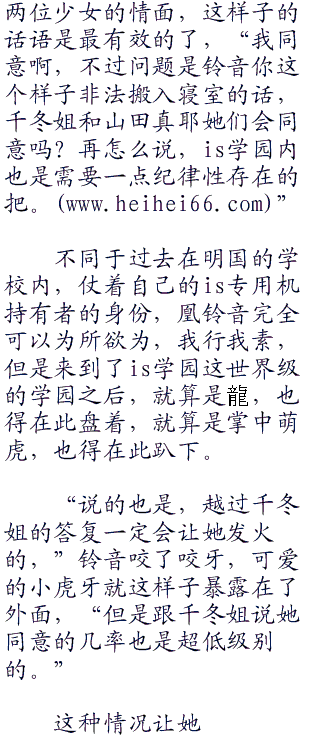 两位少女的情面，这样子的
话语是最有效的了，“我同
意啊，不过问题是铃音你这
个样子非法搬入寝室的话，
千冬姐和山田真耶她们会同
意吗？再怎么说，is学园内
也是需要一点纪律性存在的
把。(www.heihei66.com)”
不同于过去在明国的学
校内，仗着自己的is专用机
持有者的身份，凰铃音完全
可以为所欲为，我行我素，
但是来到了is学园这世界级
的学园之后，就算是龍，也
得在此盘着，就算是掌中萌
虎，也得在此趴下。
“说的也是，越过千冬
姐的答复一定会让她发火
的，”铃音咬了咬牙，可爱
的小虎牙就这样子暴露在了
外面，“但是跟千冬姐说她
同意的几率也是超低级别
的。”
这种情况让她